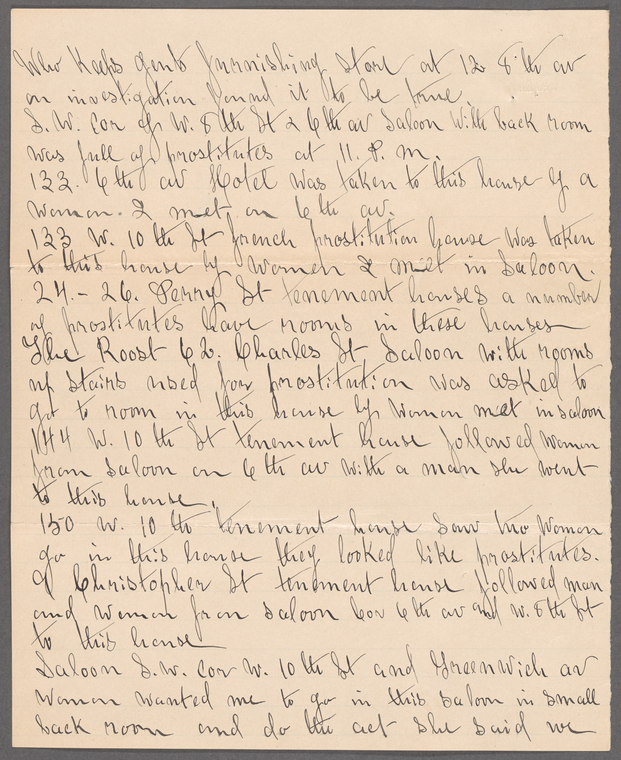 Who Keeps gents furnishing store at 12 8th av
on investigation found it to be true.
S. W. Cor of W. 8th St & 6th av Saloon with back room
was full of prostitutes at 11. P. m.
122. 6th av Hotel was taken to this house by a
woman. I met on 6th av.
133 W. 10th St french prostitution house was taken
to this house by women I met in Saloon.
24.-26. Perry St tenement houses a number
of prostitutes have rooms in these houses
The Roost 62. Charles St Saloon with rooms
up stairs used for prostitution was asked to
go to room in this house by woman met in saloon
144 W. 10th St tenement house followed woman
from saloon on 6th av with a man she went
to this house.
150 W. 10th tenement house saw two woman
go in this house they looked like prostitutes.
9 Christopher St tenement house followed man
and woman from saloon Cor 6th av and W. 8th St
to this house
Saloon S.W. Cor W. 10th St and Greenwich av
woman wanted me to go in this saloon in small
back room and do the act she said we